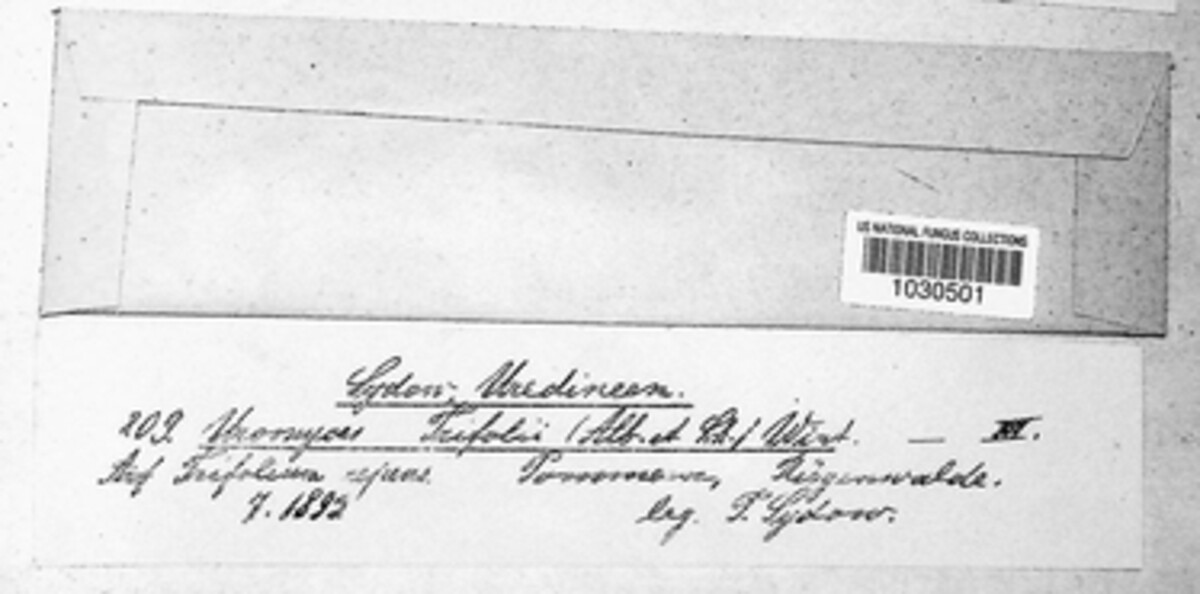 US NATIONAL FUNGUS COLLECTIONS
1030501
Sydow, Uredineen.
209. Uromyces Trifolii (Alb. et Sch.) Wint. — III.
Auf Trifolium repens Pommern, Rügenwalde.
7. 1892 leg. P. Sydow.